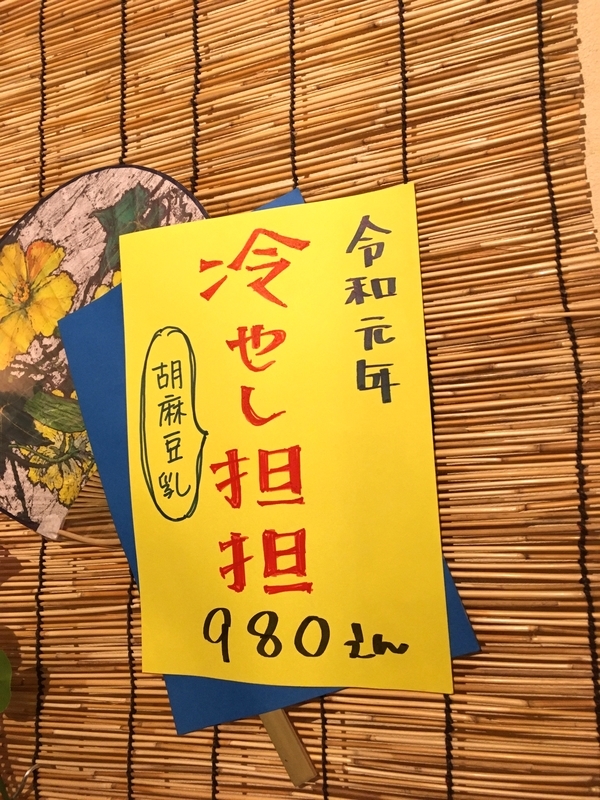 令和元年
冷やし担担
胡麻豆乳
980えん